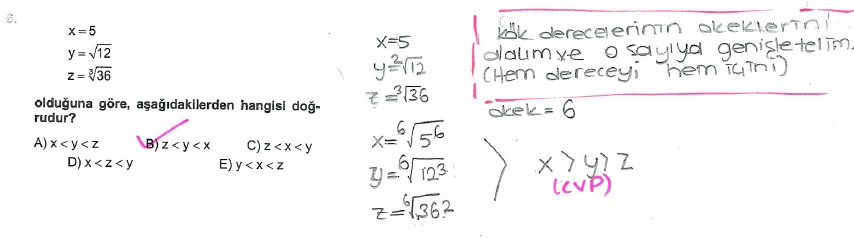 6.
x = 5
y = √12
z = ∛36
olduğuna göre, aşağıdakilerden hangisi doğ-
rudur?
A) x < y < z B) z < y < x C) z < x < y
D) x < z < y E) y < x < z
x=5
y=²√12
z=³√36
x=⁶√5⁶
y=⁶√12³
z=⁶√36²
kök derecelerinin okeklerini
alalım ve o sayıya genişletelim.
(Hem dereceyi hem içini)
okek = 6
x > y > z
(CVP)